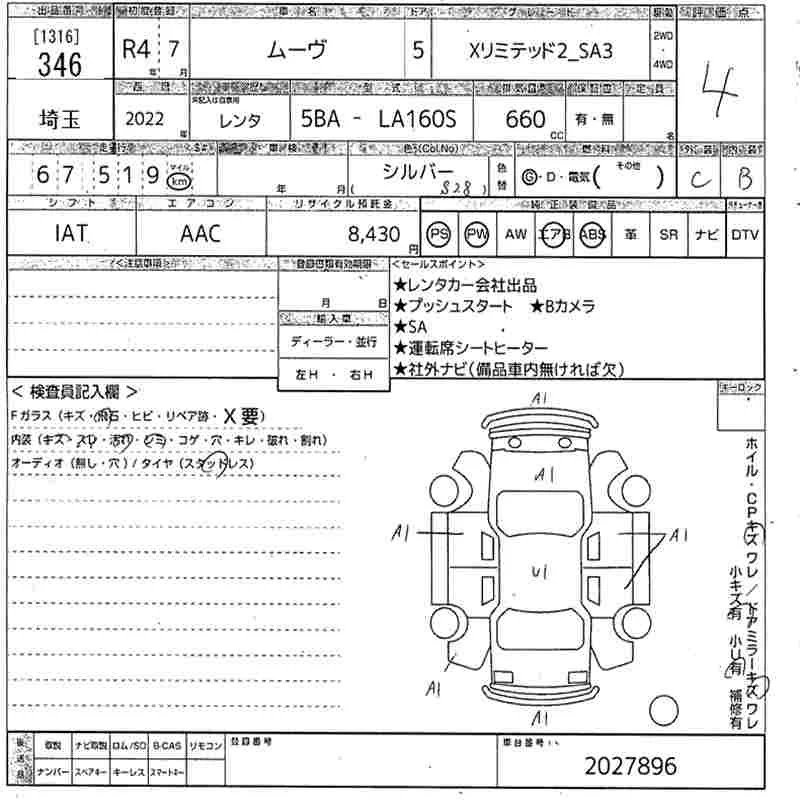 出品番号 初度登録 車名 ドア グレード 駆動 評価点
[1316]
346
R4 年 7 月
ムーヴ
5
Xリミテッド2_SA3
2WD
・
4WD
4
埼玉
2022 年
車歴 型式 排気量 保証書 定員
未記入は自家用
レンタ
5BA - LA160S
660 CC
有・無
名
走行 車検 色(Col.No) 燃料 外装 内装
67519
マイル
km
年 月(
シルバー
828 )
色替
G・D・電気( その他 )
C
B
シフト エアコン リサイクル預託金 純正装備品
IAT
AAC
8,430 円
PS PW AW エアB ABS 革 SR ナビ DTV
<注意事項>
登録書類有効期限
月 日
輸入車
ディーラー・並行
左H ・ 右H
<セールスポイント>
★レンタカー会社出品
★プッシュスタート ★Bカメラ
★SA
★運転席シートヒーター
★社外ナビ(備品車内無ければ欠)
< 検査員記入欄 >
Fガラス(キズ・飛石・ヒビ・リペア跡・X要)
内装(キズ・スレ・汚れ・シミ・コゲ・穴・キレ・破れ・割れ)
オーディオ(無し・穴)/タイヤ(スタッドレス)
キーロック
A1
A1
A1
A1
U1
A1
A1
ホイル・CPキズ ワレ/ドアミラーキズ ワレ
小キズ有 小U有 補修有
後送品
取説 ナビ取説 ロム/SD B-CAS リモコン
ナンバー スペアキー キーレス スマートキー
登録番号
車台番号
2027896